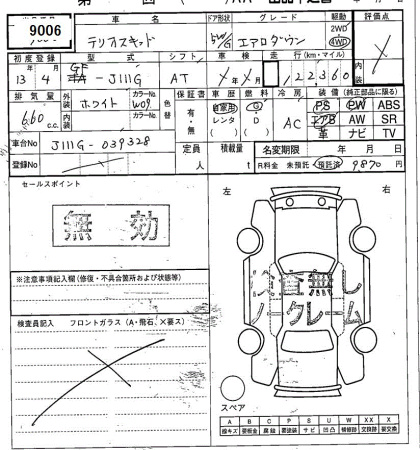 9006
車名 ドア形状 グレード 駆動 評価点
テリオスキッド 5D/W/G エアロダウン 2WD 4WD
初度登録 型式 シフト 車検 走行(km・マイル) 内装
13年 4月 GF-J111G AT X年X月 122360
排気量 外装 カラーNo. 色替 保証書 車歴 燃料 冷房 装備(純正部品に限る)
660c.c. ホワイト W09 有・無 自家用 レンタ ( ) G D ( ) AC PS PW ABS
エアB AW SR
革 ナビ TV
内装 カラーNo.
車台No J111G-039328 定員 人 積載量 t 名変期限 年 月 日
登録No R料金 未預託 預託済 9870円
セールスポイント
無効
左 右
※注意事項記入欄(修復・不具合箇所および状態等)
検査員記入 フロントガラス(A・飛石、X要ス)
ノークレーム
スペア
A B C P S U W X XX
線キズ 要板金 腐蝕 要塗装 サビ 凹凸 補修跡 交換跡 要交換